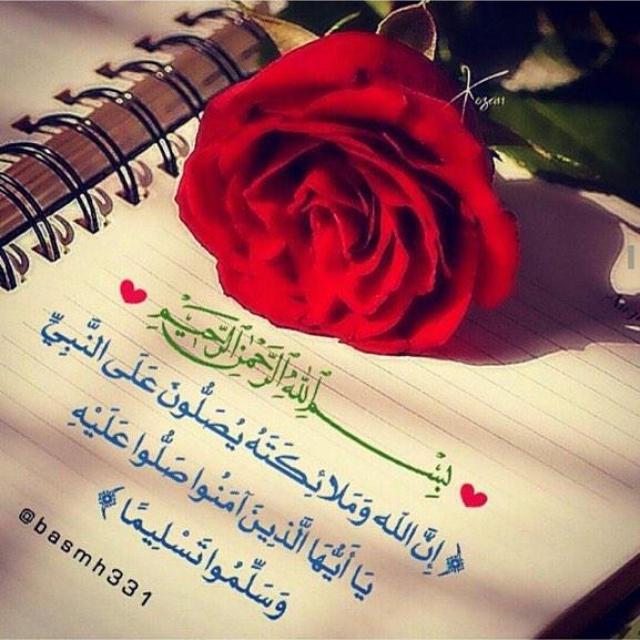 Kozem
بِسْمِ اللَّهِ الرَّحْمَٰنِ الرَّحِيمِ
﴿إِنَّ اللَّه وَمَلَائِكَتَهُ يُصَلُّونَ عَلَى النَّبِيِّ
يَا أَيُّهَا الَّذِينَ آمَنُوا صَلُّوا عَلَيْهِ
وَسَلِّمُوا تَسْلِيمًا﴾
@basmh331